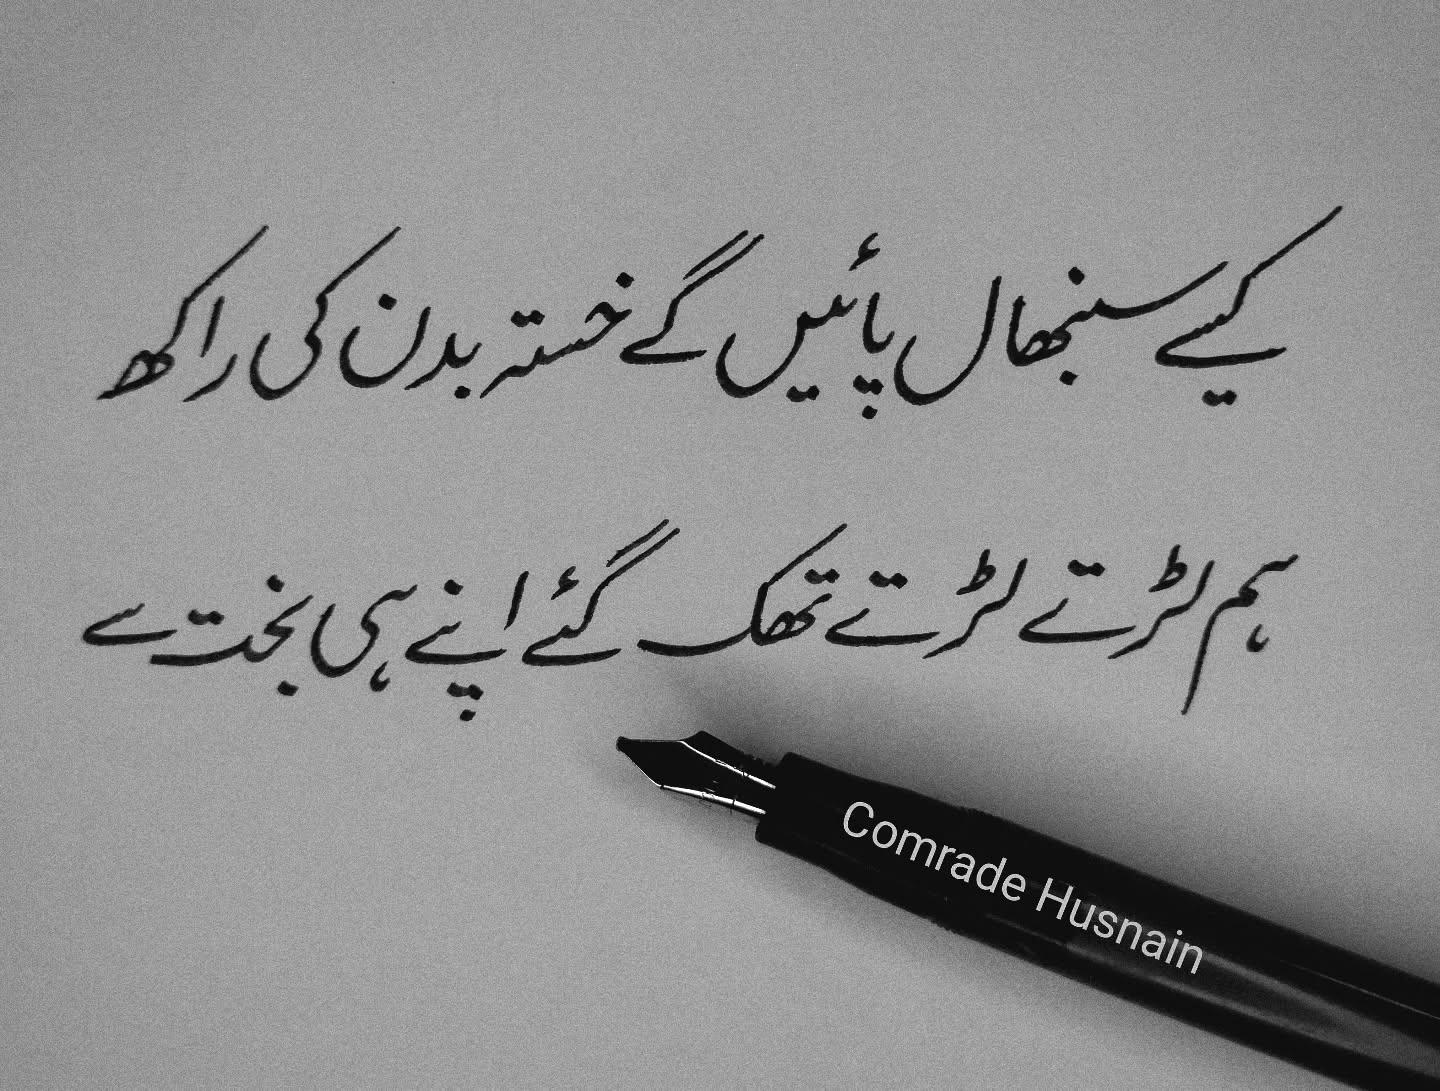 کیسے سنبھال پائیں گے خستہ بدن کی راکھ
ہم لڑتے لڑتے تھک گئے اپنے ہی بخت سے
Comrade Husnain